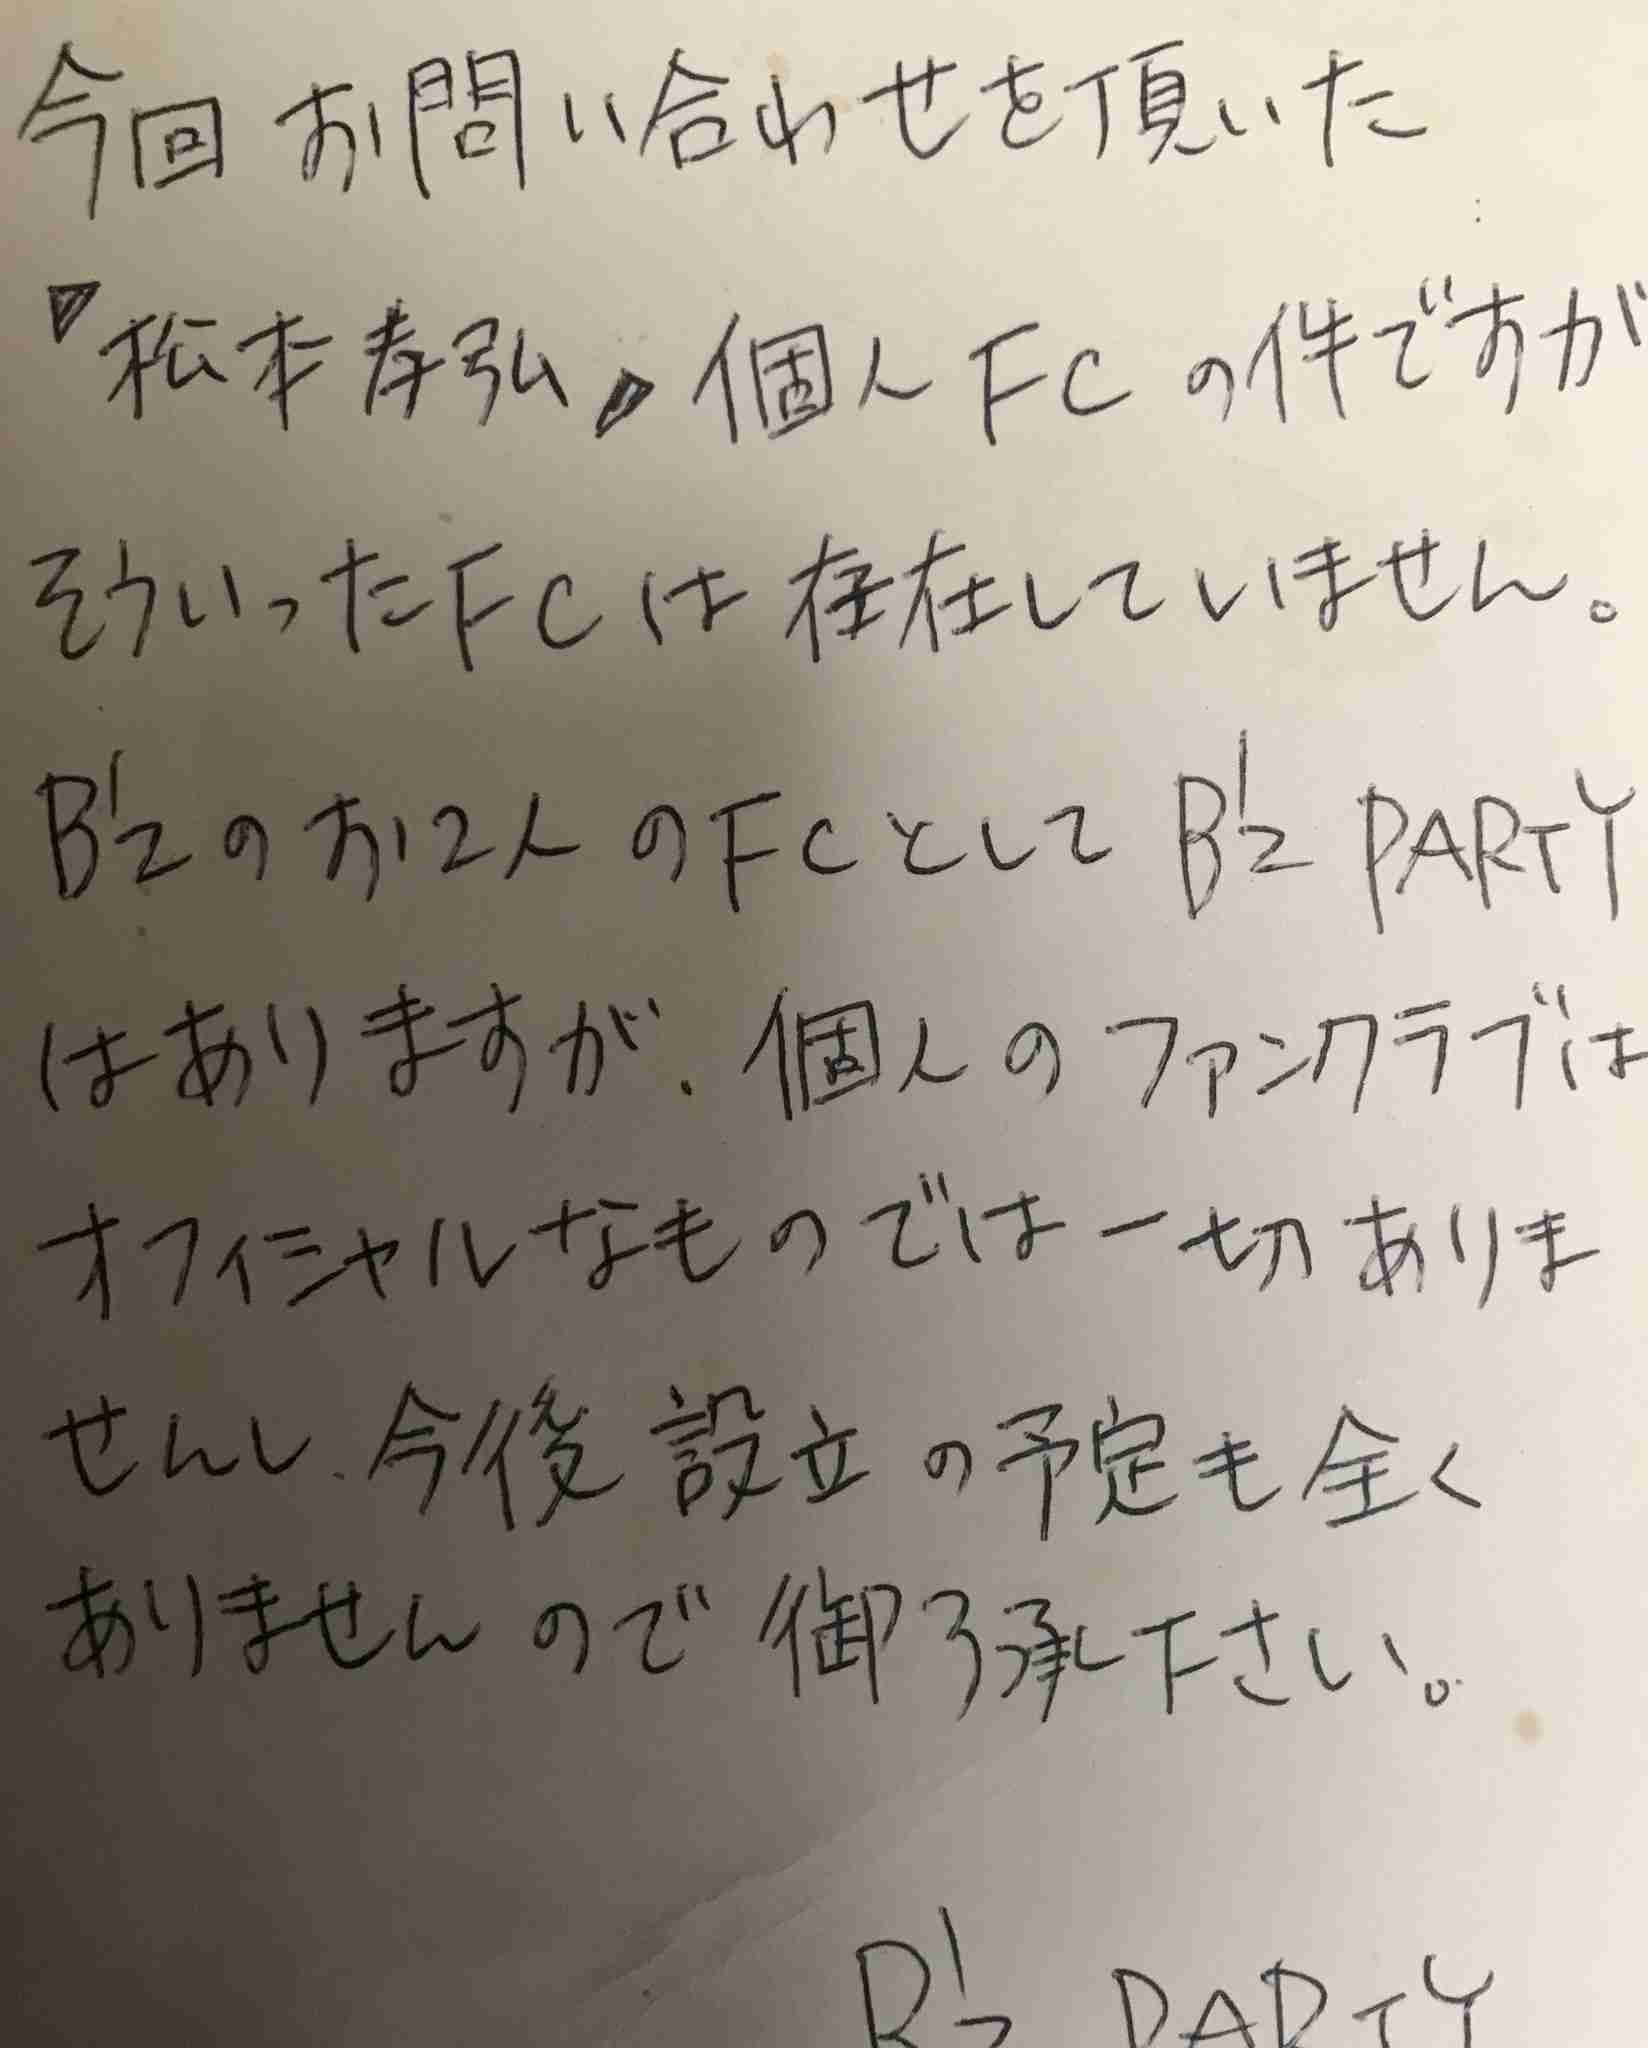 今回お問い合わせを頂いた
『松本孝弘』個人FCの件ですが
そういったFCは存在していません。
B'zのお2人のFCとしてB'z PARTY
はありますが、個人のファンクラブは
オフィシャルなものでは一切ありま
せんし、今後設立の予定も全く
ありませんので御了承下さい。
B'z PARTY